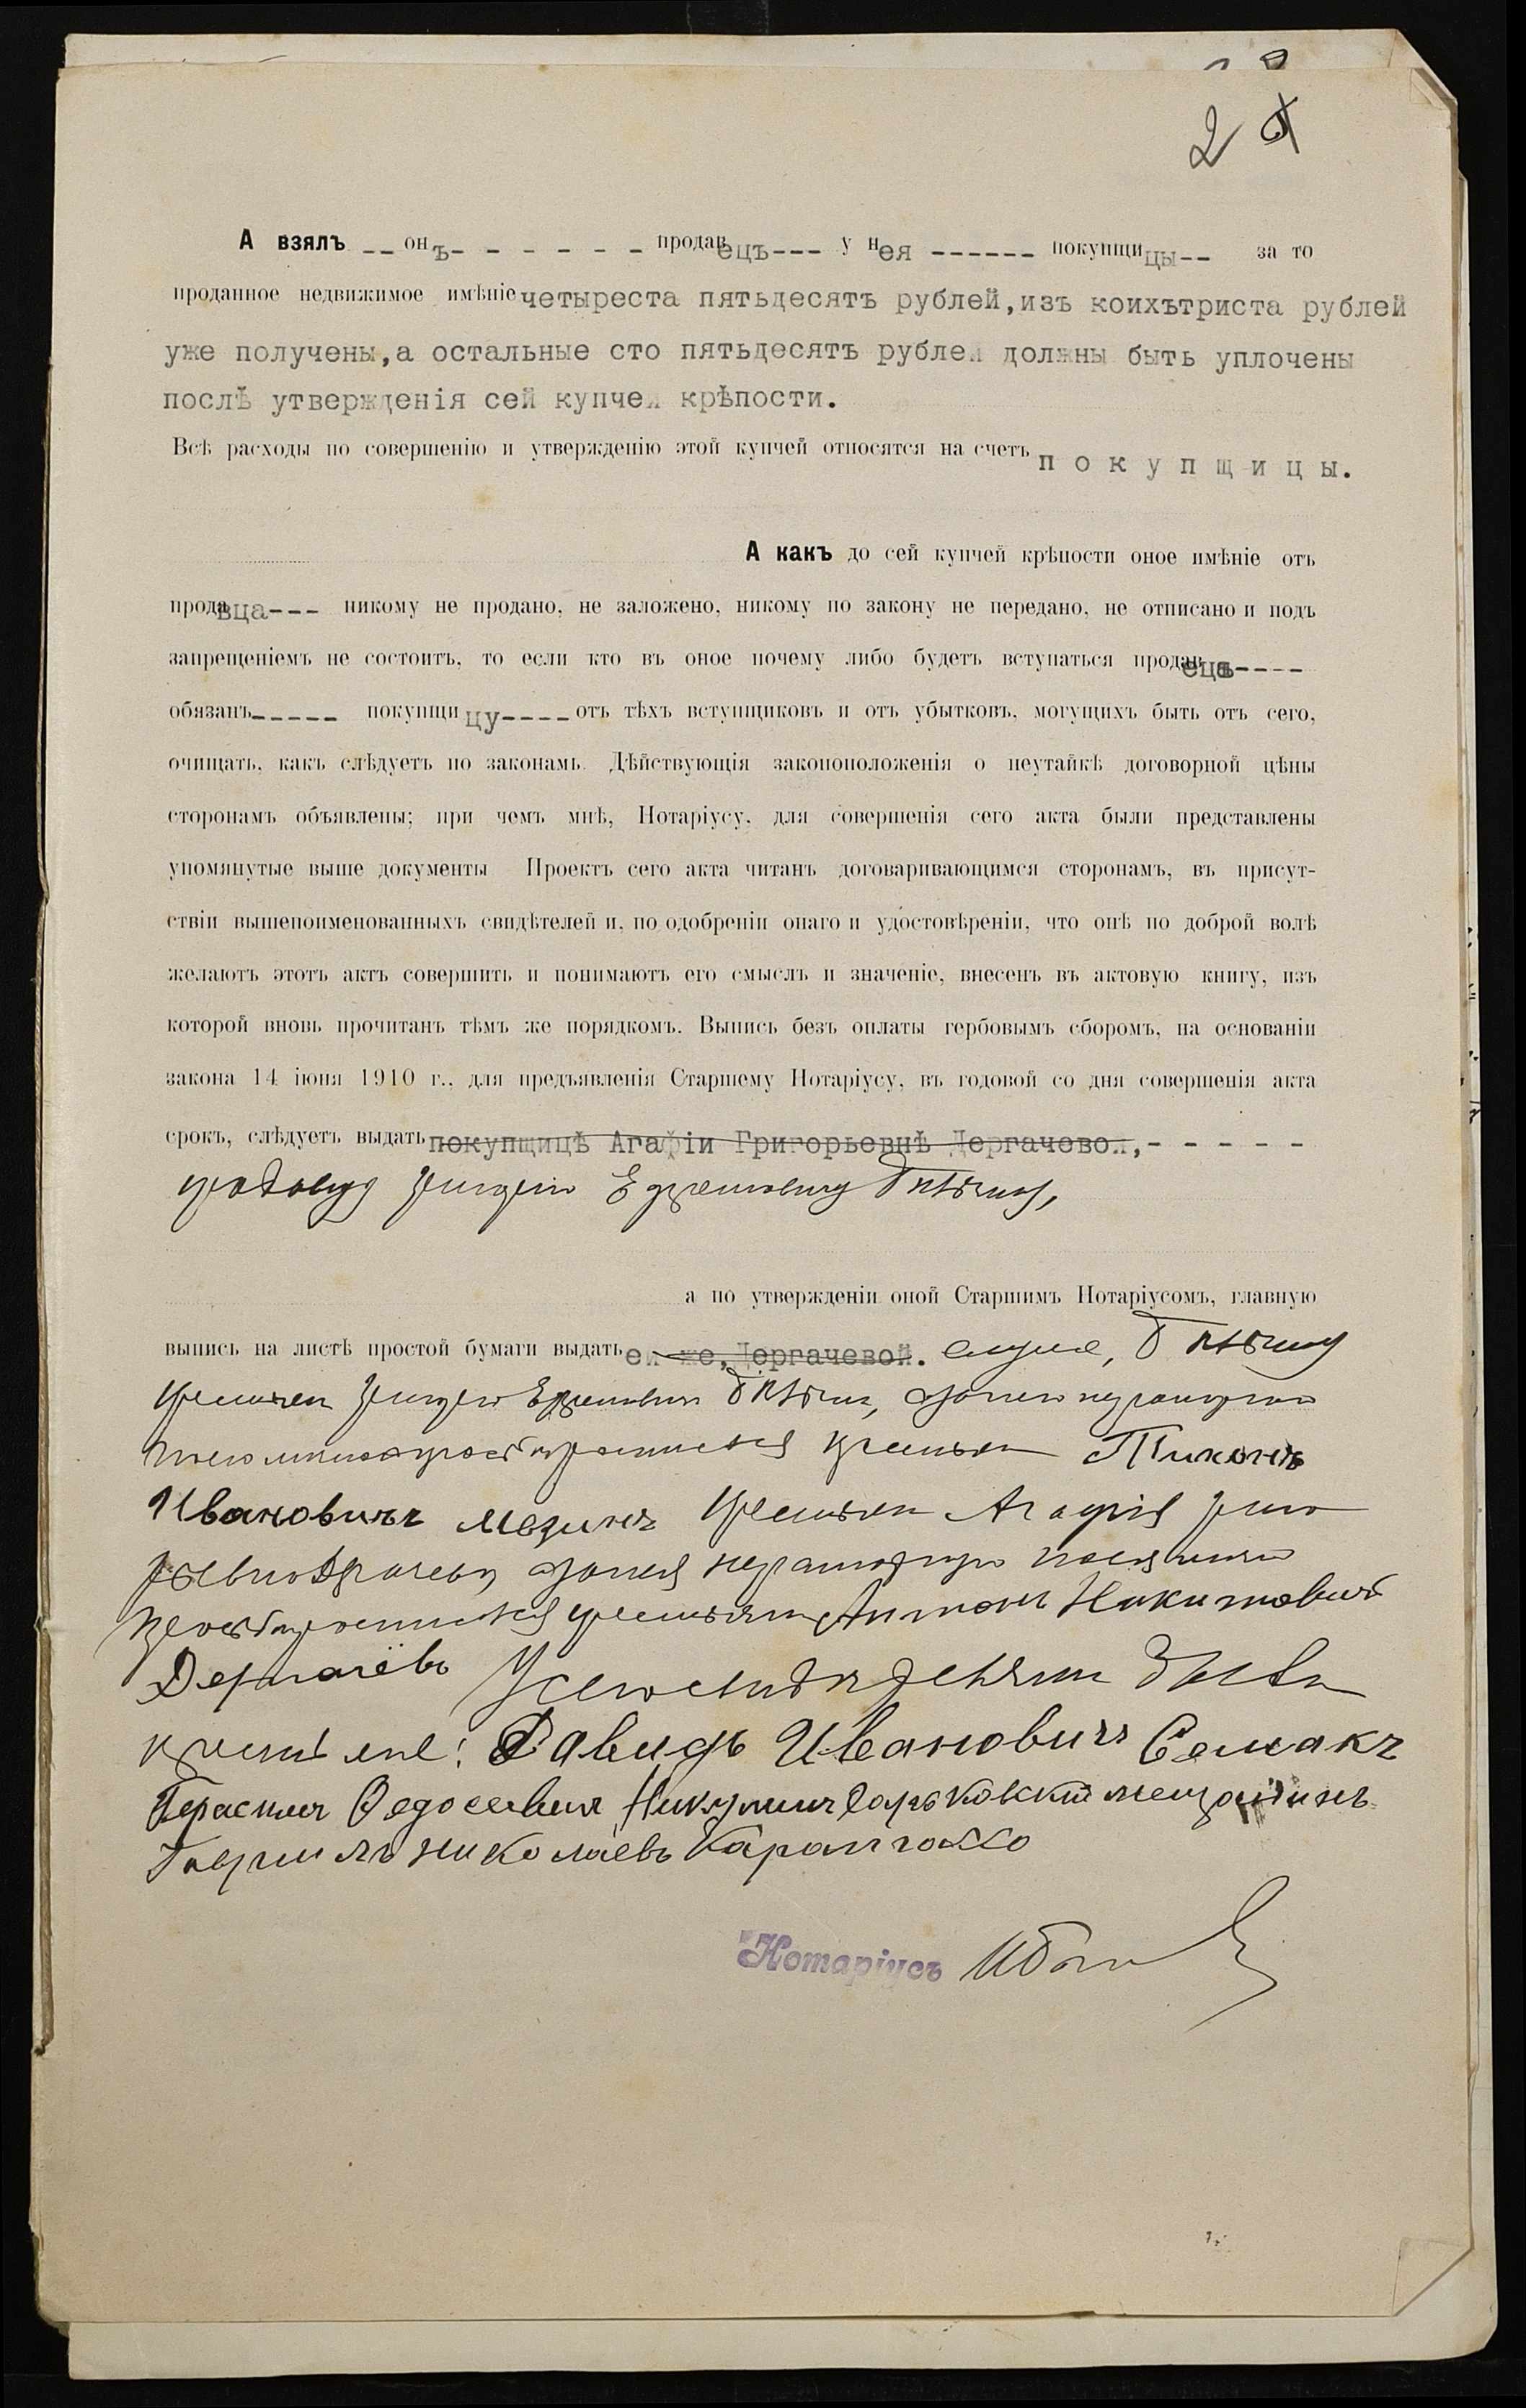 2
А взялъ -- онъ- - - - - - - продавецъ--- у нея ------ покупщицы-- за то
проданное недвижимое имѣніе четыреста пятьдесятъ рублей,изъ коихътриста рублей
уже получены,а остальные сто пятьдесятъ рублей должны быть уплочены
послѣ утвержденія сей купчей крѣпости.
Всѣ расходы по совершенію и утвержденію этой купчей относятся на счетъ покупщицы.
А какъ до сей купчей крѣпости оное имѣніе отъ
продавца--- никому не продано, не заложено, никому по закону не передано, не отписано и подъ
запрещеніемъ не состоитъ, то если кто въ оное почему либо будетъ вступаться продавецъ----
обязанъ----- покупщицу---- отъ тѣхъ вступщиковъ и отъ убытковъ, могущихъ быть отъ сего,
очищать, какъ слѣдуетъ по законамъ. Дѣйствующія законоположенія о неутайкѣ договорной цѣны
сторонамъ объявлены; при чемъ мнѣ, Нотаріусу, для совершенія сего акта были представлены
упомянутые выше документы Проектъ сего акта читанъ договаривающимся сторонамъ, въ присут-
ствіи вышепоименованныхъ свидѣтелей и, по одобреніи онаго и удостовѣреніи, что онѣ по доброй волѣ
желаютъ этотъ актъ совершить и понимаютъ его смыслъ и значеніе, внесенъ въ актовую книгу, изъ
которой вновь прочитанъ тѣмъ же порядкомъ. Выпись безъ оплаты гербовымъ сборомъ, на основаніи
закона 14 іюня 1910 г., для предъявленія Старшему Нотаріусу, въ годовой со дня совершенія акта
срокъ, слѣдуетъ выдать покупщицѣ Агафіи Григорьевнѣ Дергачевой,- - - - -
а по утвержденіи оной Старшимъ Нотаріусомъ, главную
выпись на листѣ простой бумаги выдать ей же, Дергачевой.
Тихонъ
Ивановичъ Мезинъ Агафія
Антонъ Никитовичъ
Дергачёвъ
Давидъ Ивановичъ Семакъ
Герасимъ Федосеевичъ Никулинъ Харьковскій мещанинъ
Гавриилъ Николаевъ
Нотаріусъ